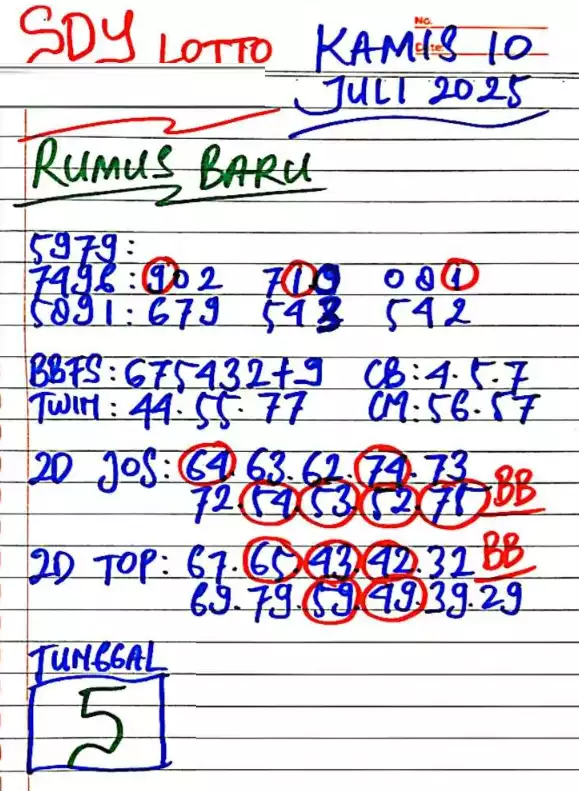 SDY LOTTO KAMIS 10
No.
Date:
JULI 2025
RUMUS BARU
5979:
7496:902 719 081
5891:679 543 542
BBFS:675432+9 CB:4.5.7
TWIM:44.55.77 CM:56.57
2D JOS:64.63.62.74.73
72.54.53.52.75 BB
2D TOP:67.65.43.42.32 BB
69.79.59.49.39.29
TUNGGAL
5